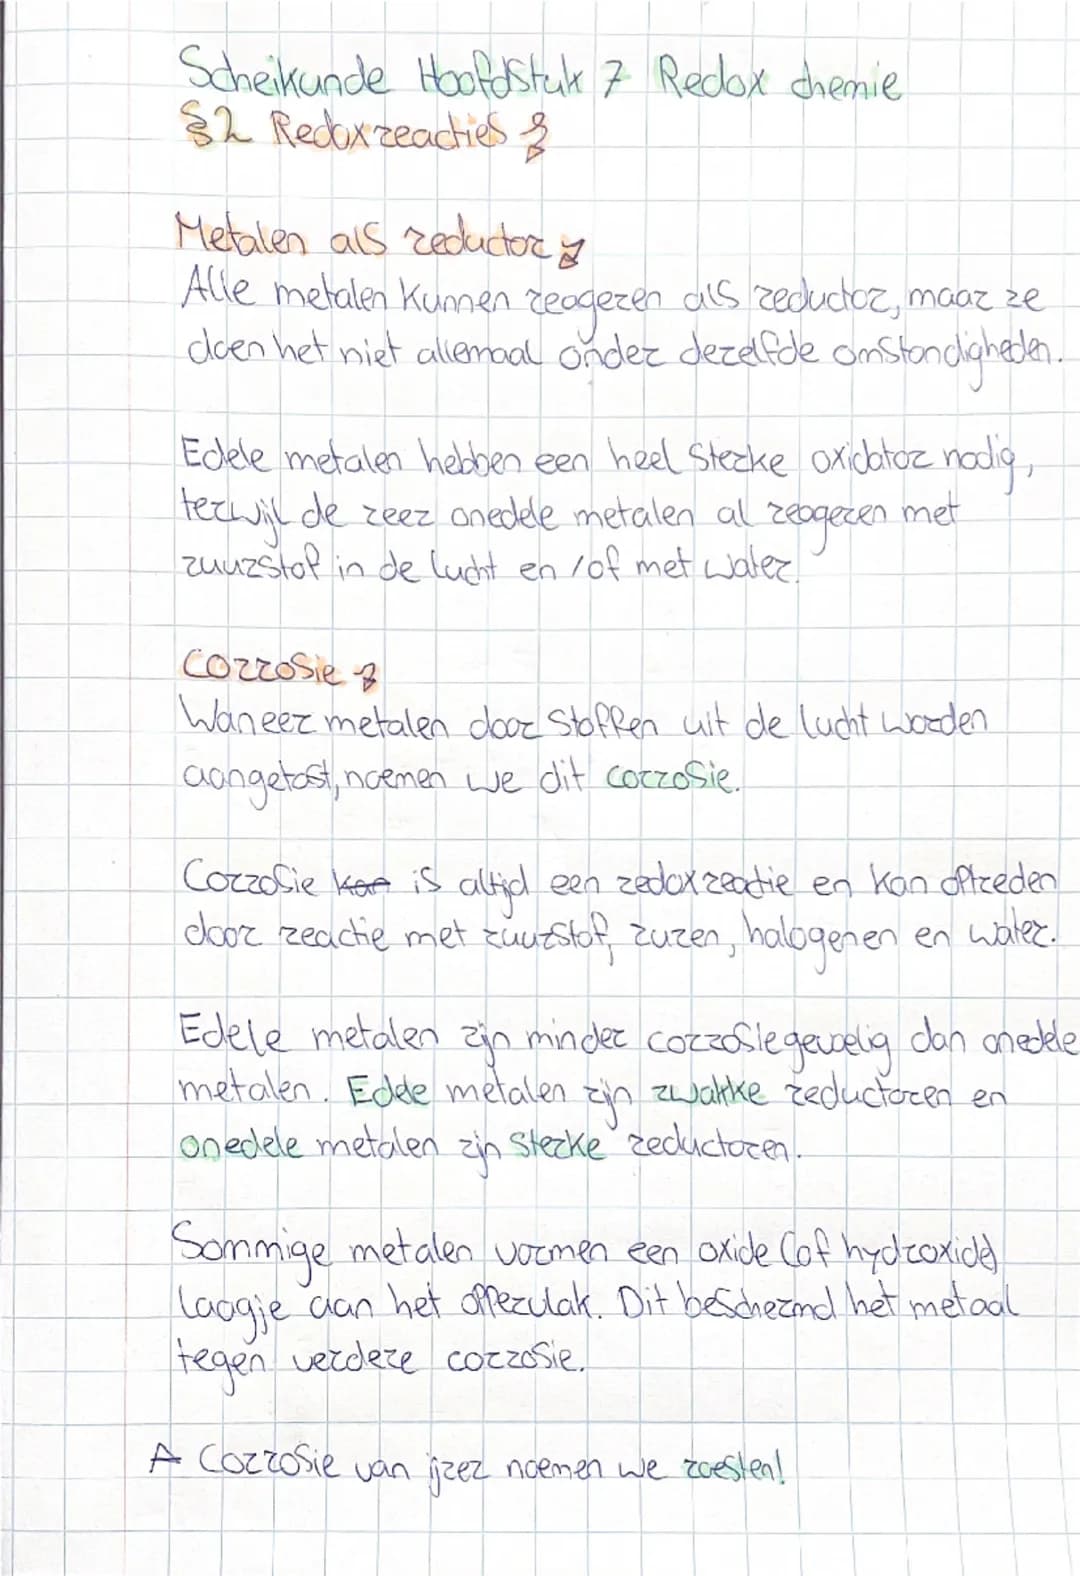 Scheikunde Hoofdstuk 7 Redox chemie
§2 Redoxreacties
Metalen als reductor
Alle metalen kunnen reageren als reductor, maar ze
doen het niet allemaal onder dezelfde omstandigheden.
Edele metalen hebben een heel sterke oxidator nodig,
terwijl de zeer onedele metalen al reageren met
zuurstof in de lucht en/of met water.
Corrosie
Waneer metalen door stoffen uit de lucht worden
aangetast, noemen we dit corrosie.
Corrosie kan is altijd een redoxreactie en kan optreden
door reactie met zuurstof, zuren, halogenen en water.
Edele metalen zijn minder corrosiegevoelig dan onedele
metalen. Edele metalen zijn zwakke reductoren en
onedele metalen zijn sterke reductoren.
Sommige metalen vormen een oxide (of hydroxide)
laagje aan het oppervlak. Dit beschermd het metaal
tegen verdere corrosie.
A Corrosie van ijzer noemen we roesten!